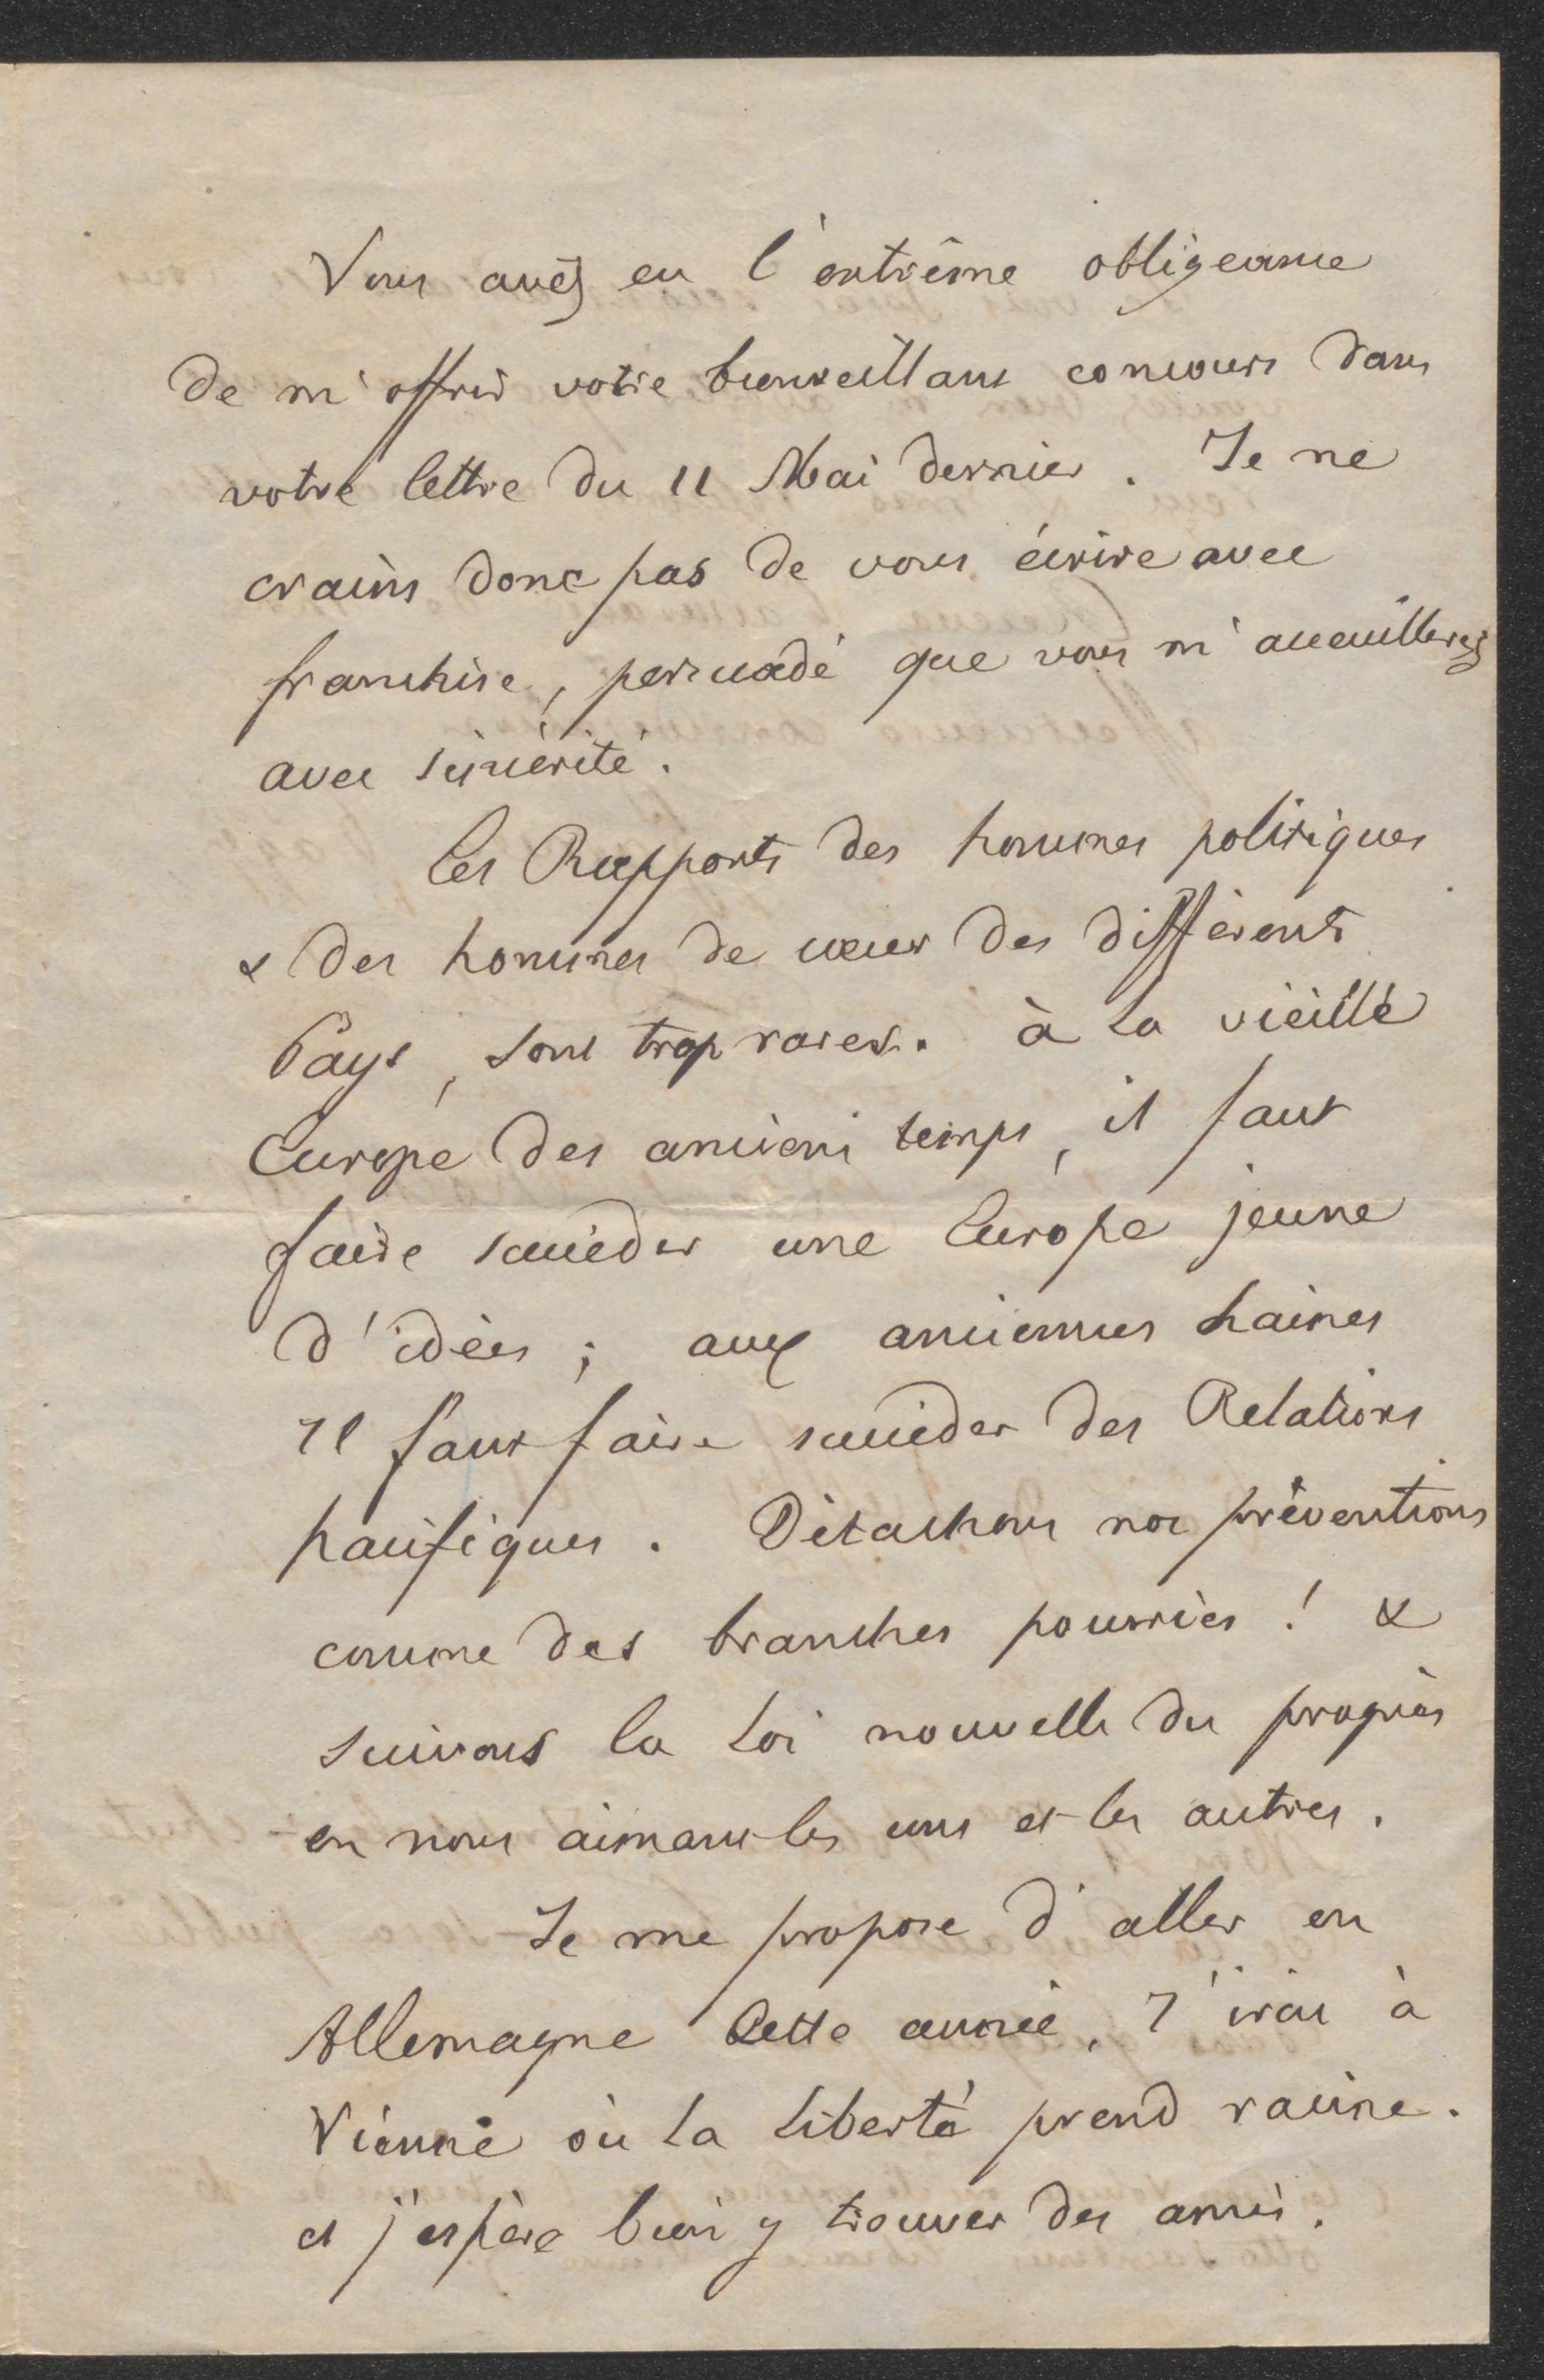 Vous avez eu l'extrême obligeance
de m'offrir votre bienveillant concours dans
votre lettre du 11 Mai dernier. Je ne
crains donc pas de vous écrire avec
franchise, persuadé que vous m'accueillerez
avec sincérité.
Les Rapports des hommes politiques
& des hommes de cœur des différents
Pays, sont trop rares. à la vieille
Europe des anciens temps, il faut
faire succéder une Europe jeune
d'idées ; aux anciennes haines
il faut faire succéder des Relations
pacifiques. Détachons nos préventions
comme des branches pourries ! &
suivons la Loi nouvelle du progrès
en nous aimant les uns et les autres.
Je me propose d'aller en
Allemagne Cette année, J'irai à
Vienne où la Liberté prend racine.
et j'espère bien y trouver des amis.